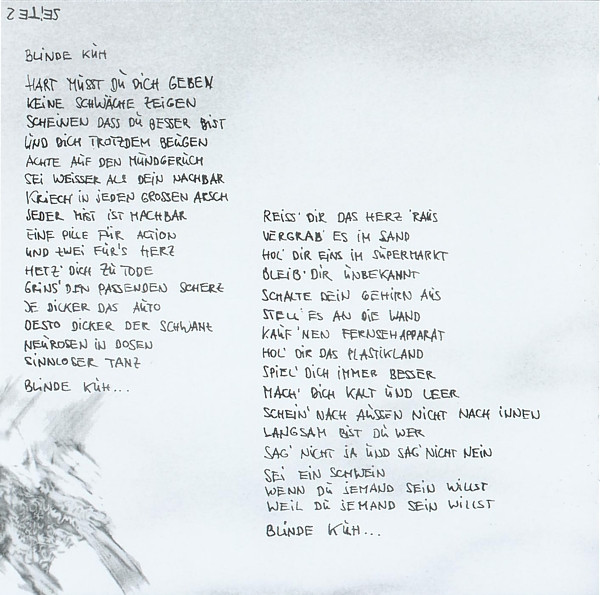 SEITE 2
BLINDE KUH
HART MUSST DU DICH GEBEN
KEINE SCHWÄCHE ZEIGEN
SCHEINEN DASS DU BESSER BIST
UND DICH TROTZDEM BEUGEN
ACHTE AUF DEN MUNDGERUCH
SEI WEISSER ALS DEIN NACHBAR
KRIECH IN JEDEN GROSSEN ARSCH
JEDER MIST IST MACHBAR
EINE PILLE FÜR ACTION
UND ZWEI FÜR'S HERZ
HETZ' DICH ZU TODE
GRINS' DEN PASSENDEN SCHERZ
JE DICKER DAS AUTO
DESTO DICKER DER SCHWANZ
NEUROSEN IN DOSEN
SINNLOSER TANZ
BLINDE KUH...
REISS' DIR DAS HERZ 'RAUS
VERGRAB' ES IM SAND
HOL' DIR EINS IM SUPERMARKT
BLEIB' DIR UNBEKANNT
SCHALTE DEIN GEHIRN AUS
STELL' ES AN DIE WAND
KAUF 'NEN FERNSEHAPPARAT
HOL' DIR DAS PLASTIKLAND
SPIEL' DICH IMMER BESSER
MACH' DICH KALT UND LEER
SCHEIN' NACH AUSSEN NICHT NACH INNEN
LANGSAM BIST DU WER
SAG' NICHT JA UND SAG' NICHT NEIN
SEI EIN SCHWEIN
WENN DU JEMAND SEIN WILLST
WEIL DU JEMAND SEIN WILLST
BLINDE KUH...